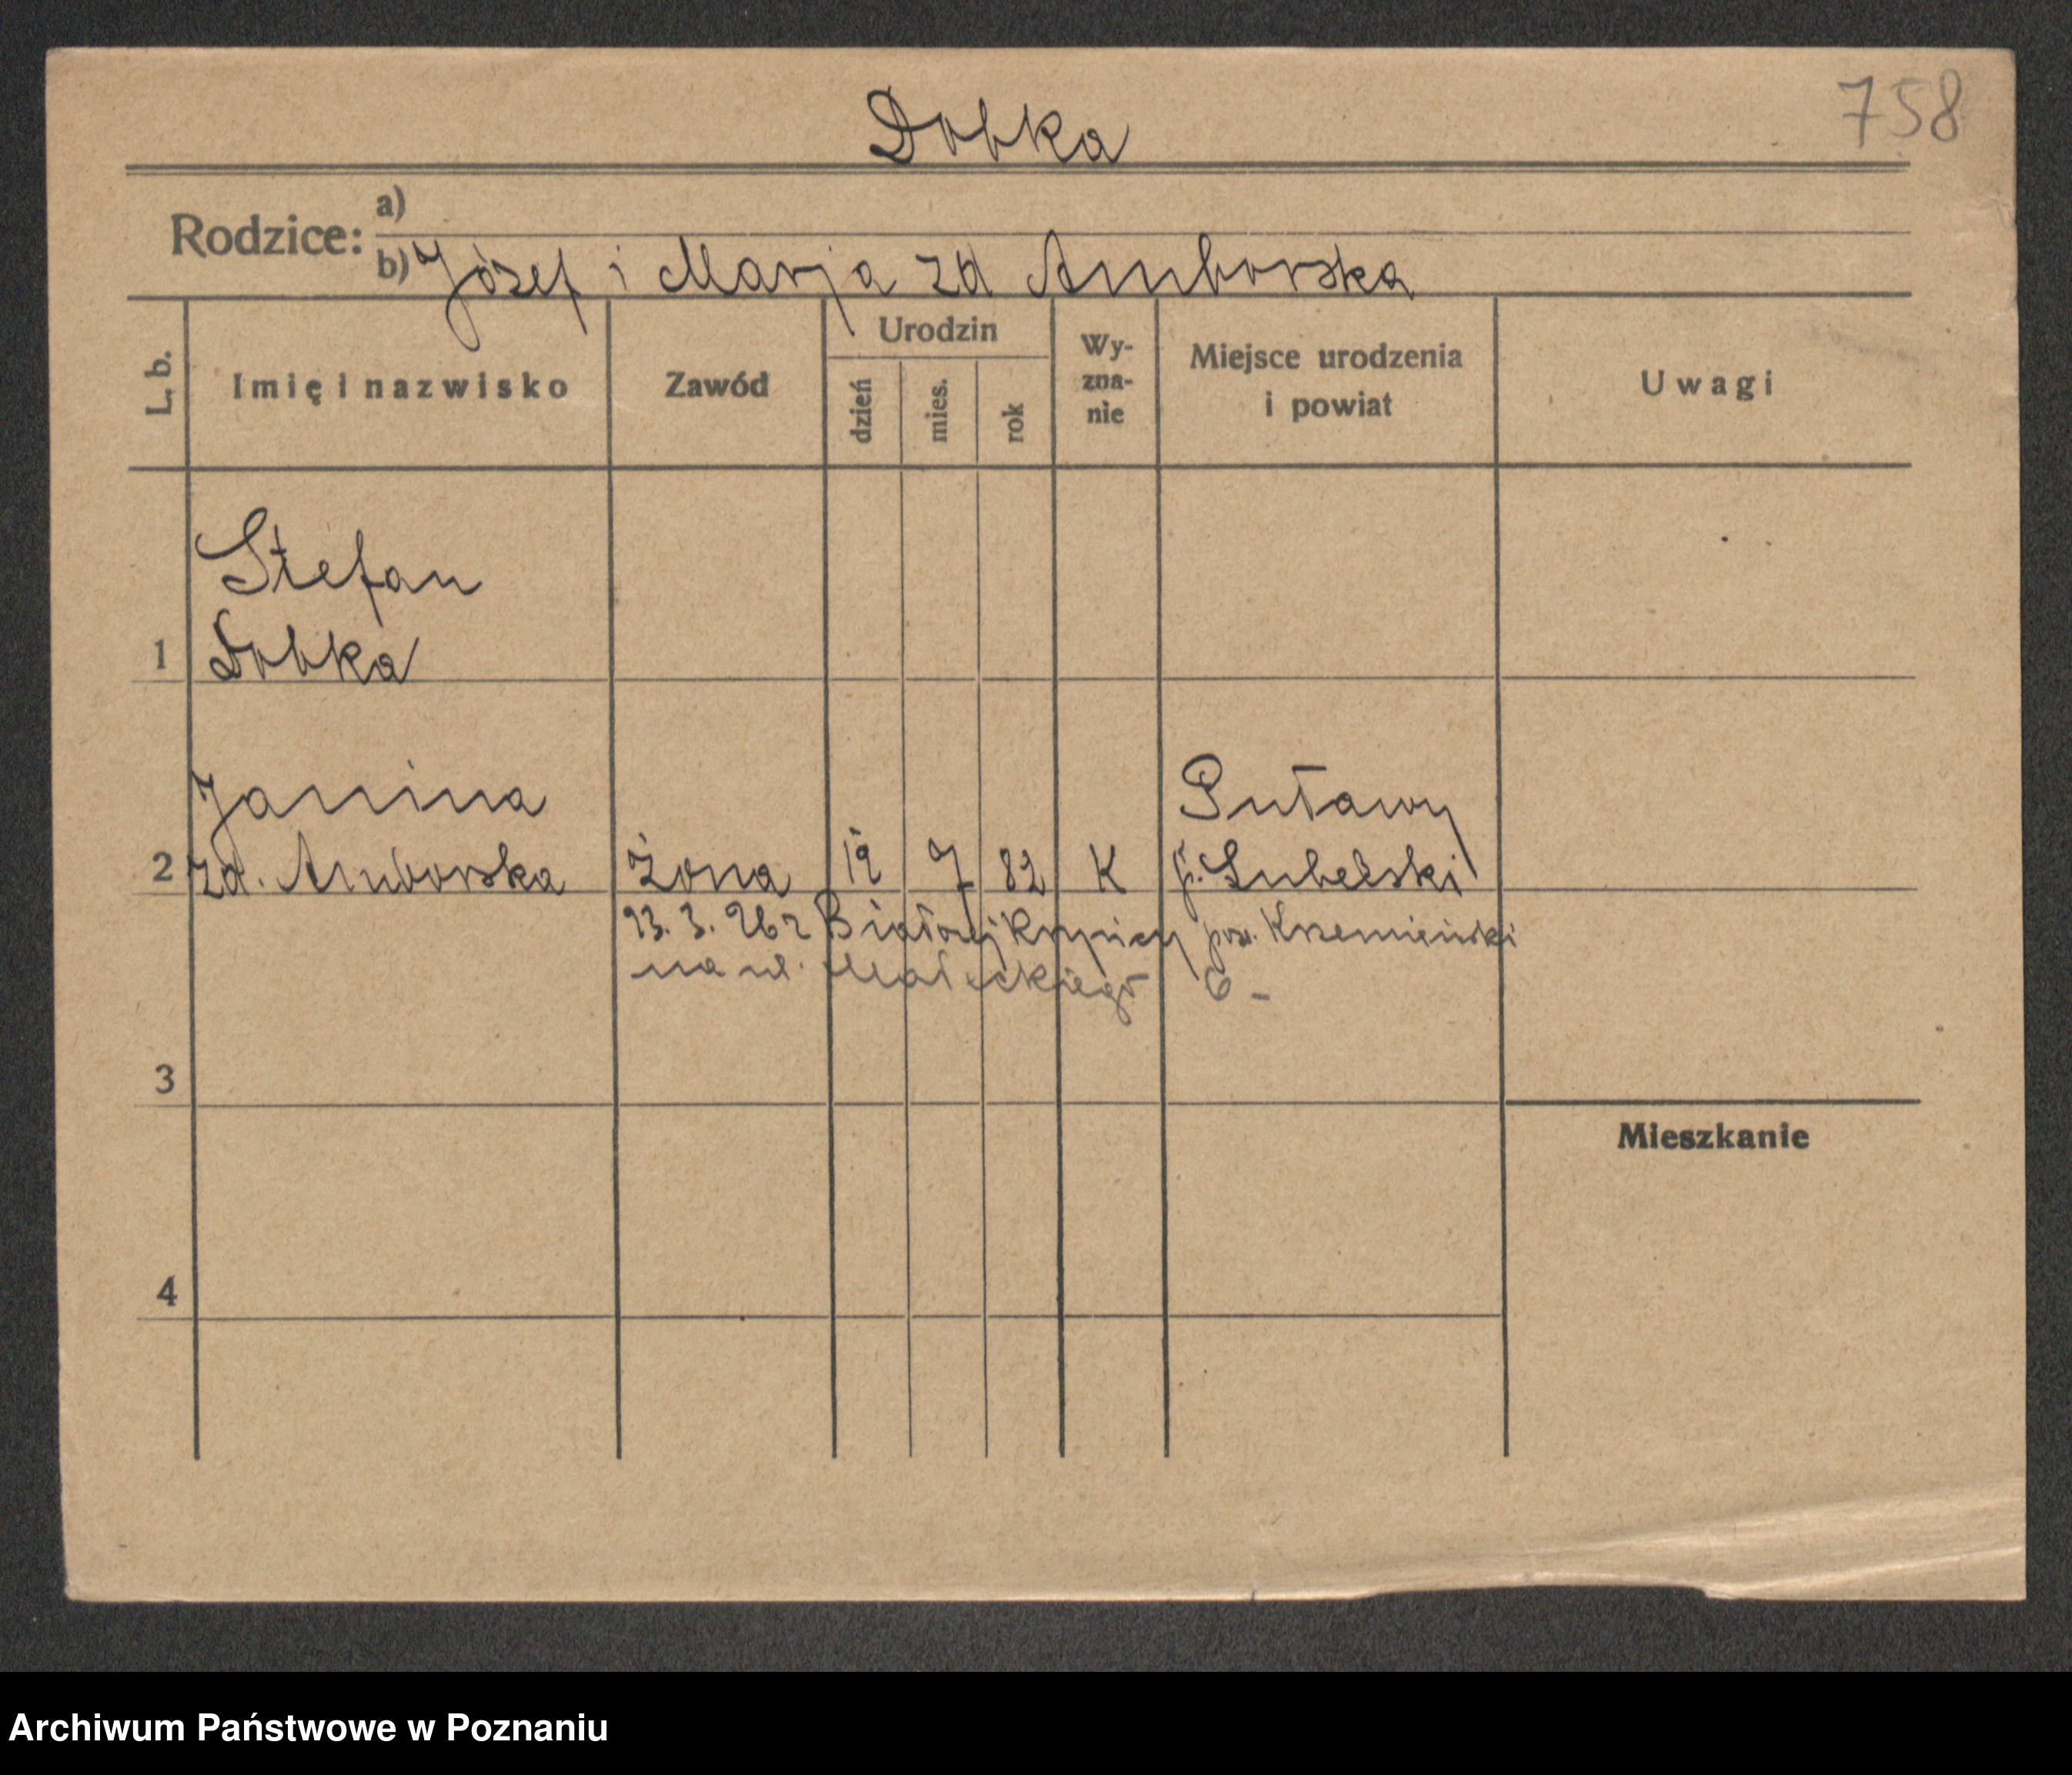 Dobka
758
Rodzice:
a)
b) Józef i Marja zd Amborska
L. b.
Imię i nazwisko
Zawód
Urodzin
dzień
mies.
rok
Wy-
zna-
nie
Miejsce urodzenia
i powiat
Uwagi
1
Stefan
Dobka
2
Janina
zd. Amborska
Żona
19
7
82
K
Puławy
p. Lubelski
23. 3. 26 z Białowej Krynicy pow. Krzemieński
na ul. Małeckiego 6 -
3
Mieszkanie
4
Archiwum Państwowe w Poznaniu